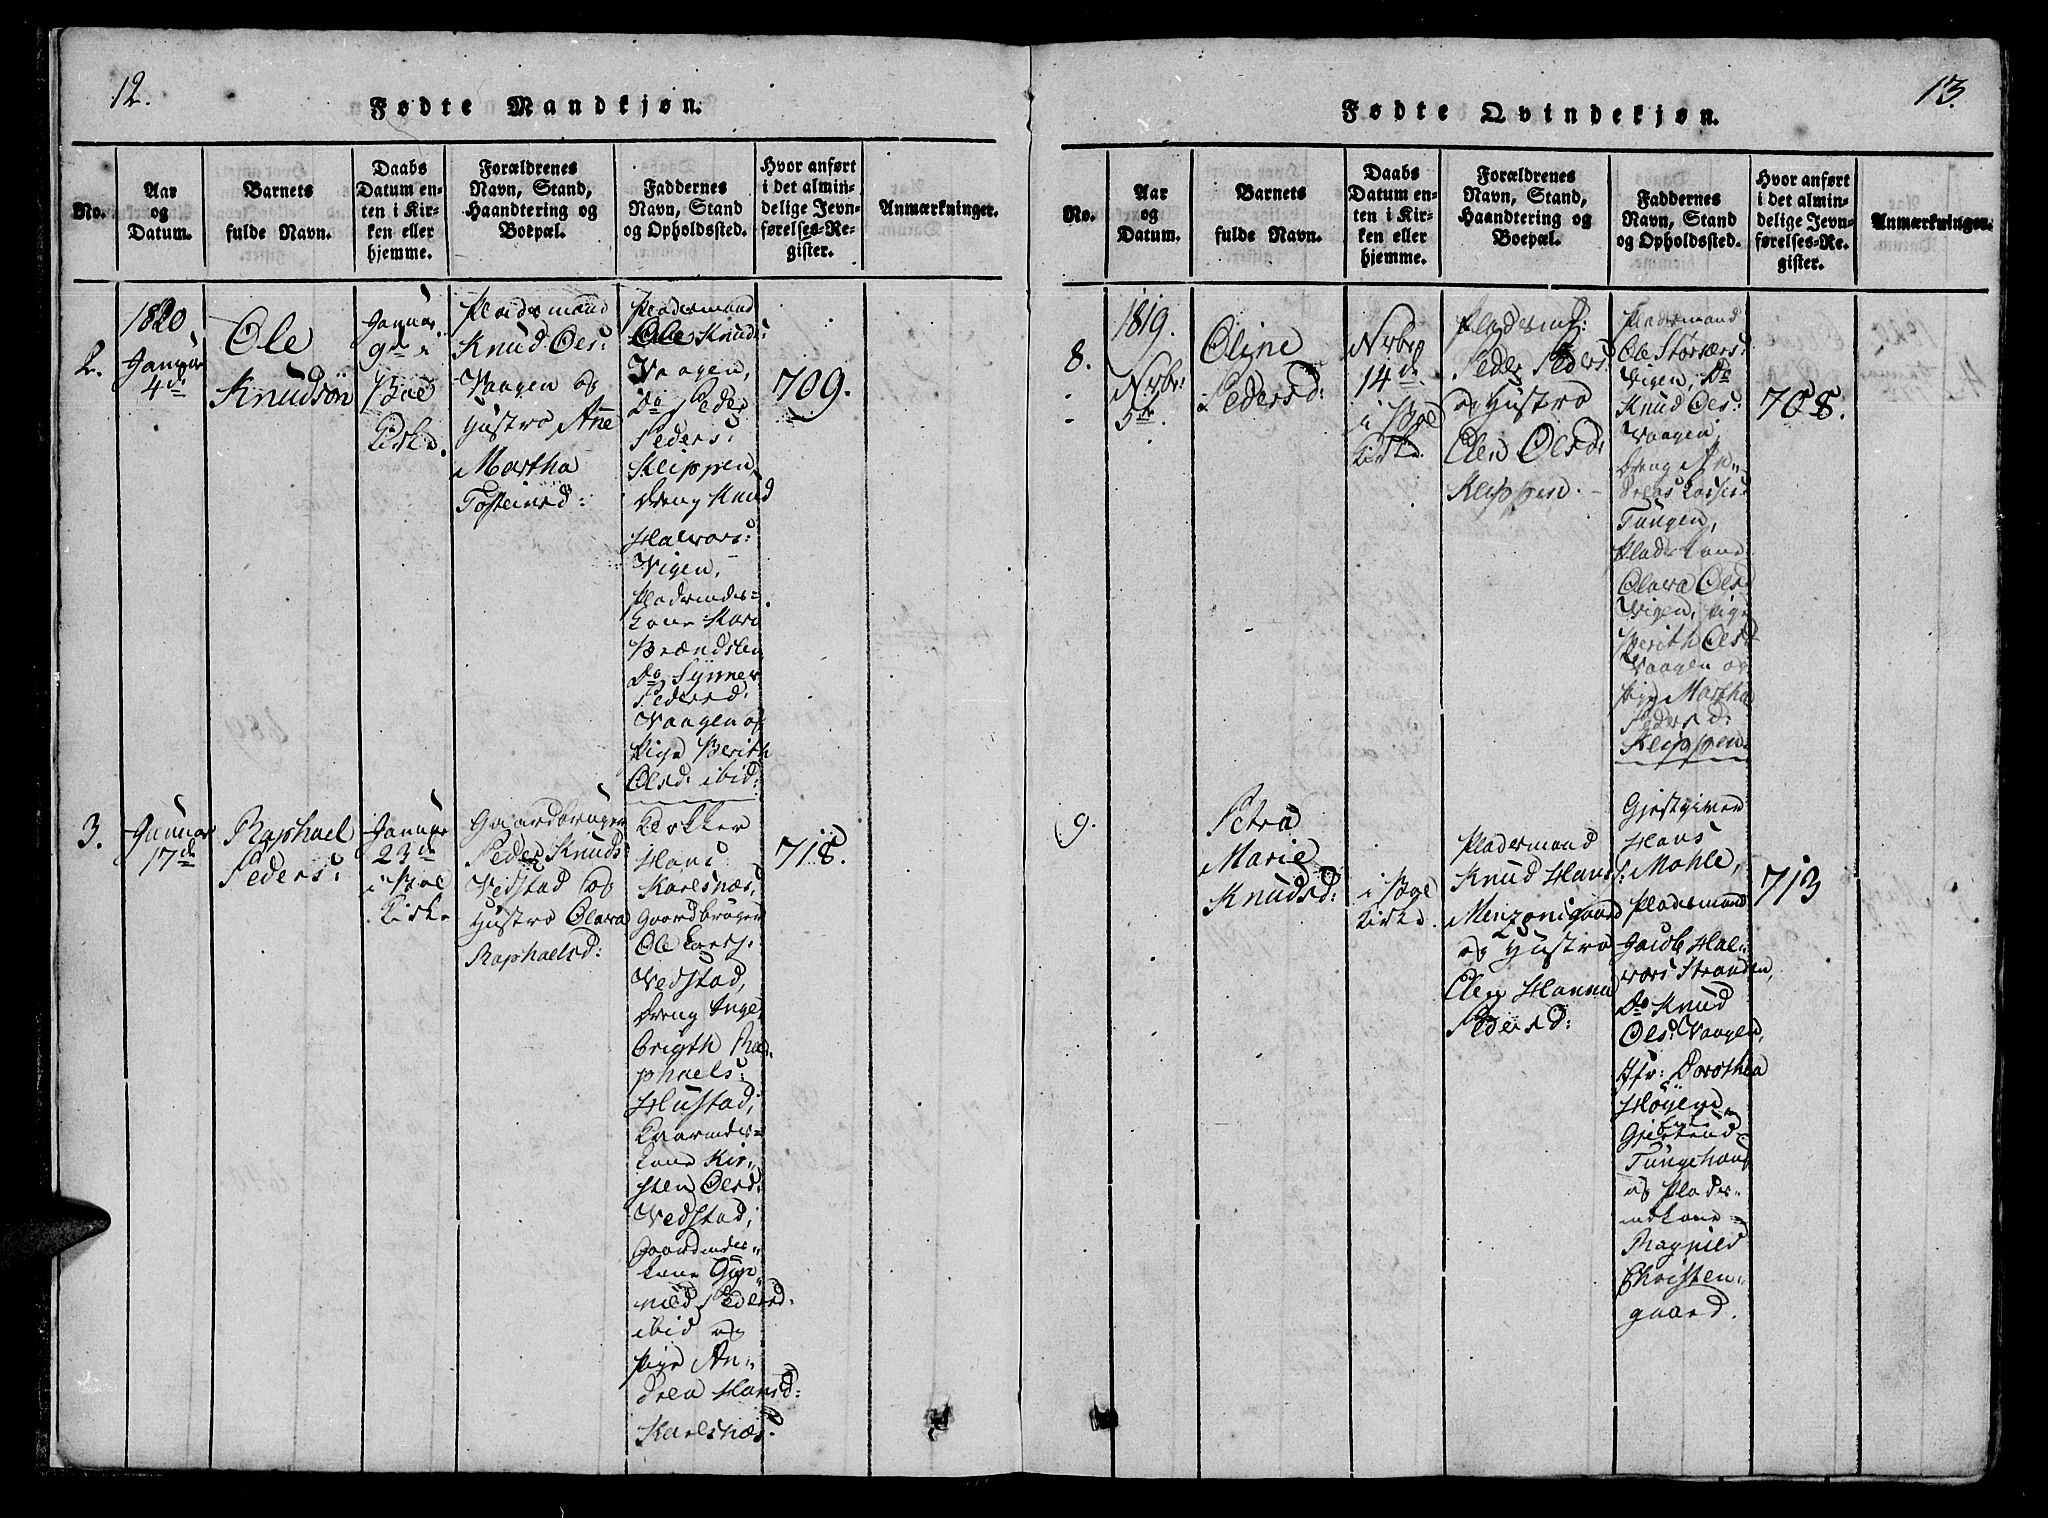 12.
Fødte Mandkjøn.
No.
Aar
og
Datum.
Barnets
fulde Navn.
Daabs
Datum en-
ten i Kir-
ken eller
hjemme.
Forældrenes
Navn, Stand,
Haandtering og
Boepæl.
Faddernes
Navn, Stand
og Opholdssted.
Hvor anført
i det almin-
delige Jevn-
førelses-Re-
gister.
Anmærkninger.
2.
1820
Januar
4de
Ole
Knudsøn
Januar
9de i
Boe
Kirke.
Pladsmand
Knud Ols:
Vaagen og
Hustro Ane
Martha
Tosteinsd:
Pladsmand
Ole Knuds:
Vaagen,
Do Peder
Peders:
Kleppen,
Dreng Knud
Halvors:
Vigen,
Pladsmands-
kone Kari
Brændslen
Do Synnev
Pedersd:
Vaagen og
Pige Berith
Olsd: ibid:
709.
3.
Januar
17de
Raphael
Peders:
Januar
23de
i Boe
Kirke
Gaardbruger
Peder Knuds:
Vedstad og
Hustro Olava
Raphaelsd:
Klokker
Hans
Karlsnæs,
Gaardbruger
Ole Larss:
Vedstad,
Dreng Inge-
brigth Ra-
phaels:
Hustad,
kone Kir-
sten Olsd:
Vedstad,
kone Gun-
nild Pedersd:
ibid og
Pige An-
drea Hansd:
Karlsnæs.
718.
13.
Fødte Qvindekjøn.
No.
Aar
og
Datum.
Barnets
fulde Navn.
Daabs
Datum en-
ten i Kir-
ken eller
hjemme.
Forældrenes
Navn, Stand,
Haandtering og
Boepæl.
Faddernes
Navn, Stand
og Opholdssted.
Hvor anført
i det almin-
delige Jevn-
førelses-Re-
gister.
Anmærkninger.
8.
1819.
Nvbr:
5te
Oline
Pedersd:
Nvbr
14de
i Boe
Kirke.
Pladsm:
Peder Peders:
og Hustro
Elen Olsd:
Kleppen.
Pladsmand
Ole Storværs:
Vigen, Do
Knud Ols:
Vaagen,
Dreng An-
dreas Lassis:
Tungen,
Pladskone
Olava Olsd
Vigen, Pige
Berith Olsd
Vaagen og
Pige Martha
Pedersd:
Kleppen.
708.
9.
Petra
Marie
Knudsd:
i Boe
Kirke.
Pladsmand
Knud Hans:
Menzonigaard
og Hustro
Elen Hanna
Pedersd:
Gjestgiver
Hans
Mohle,
Pladsmand
Jacob Hal-
vors Stranden,
Do Knud
Ols: Vaagen,
Jfr: Dorothea
Høyem
Tungehaug
og Plads-
mdkone
Ragnild
Christen-
gaard.
713